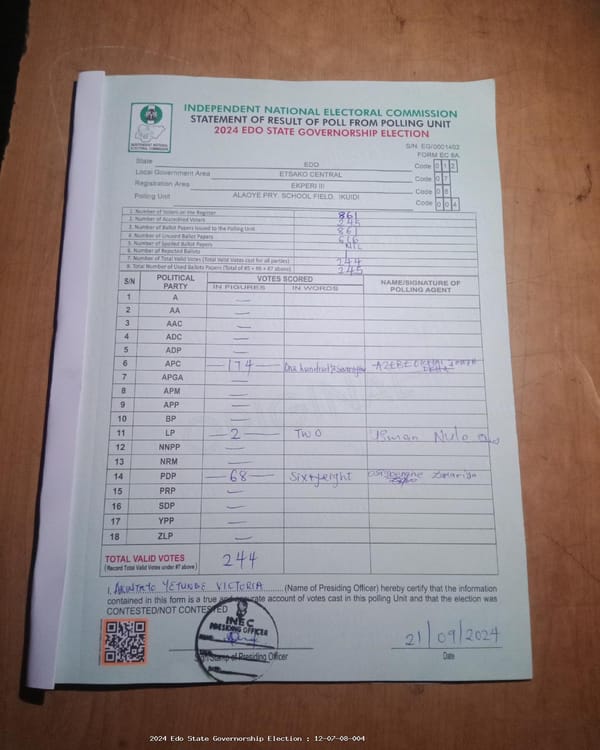 INDEPENDENT NATIONAL ELECTORAL COMMISSION
STATEMENT OF RESULT OF POLL FROM POLLING UNIT
2024 EDO STATE GOVERNORSHIP ELECTION
INDEPENDENT NATIONAL ELECTORAL COMMISSION
S/N: EG/0001402
FORM EC 8A
State EDO Code 0 1 2
Local Government Area ETSAKO CENTRAL Code 0 7
Registration Area EKPERI III Code 0 8
Polling Unit ALAOYE PRY. SCHOOL FIELD, IKUIDI Code 0 0 4
1. Number of Voters on the Register 861
2. Number of Accredited Voters 245
3. Number of Ballot Papers Issued to the Polling Unit 861
4. Number of Unused Ballot Papers 616
5. Number of Spoiled Ballot Papers NIL
6. Number of Rejected Ballots
7. Number of Total Valid Votes (Total Valid Votes cast for all parties) 244
8. Total Number of Used Ballots Papers (Total of #5 + #6 + #7 above) 245
S/N POLITICAL PARTY VOTES SCORED NAME/SIGNATURE OF POLLING AGENT
IN FIGURES IN WORDS
1 A —
2 AA —
3 AAC —
4 ADC —
5 ADP —
6 APC —174— One hundred & seventy four
7 APGA —
8 APM —
9 APP —
10 BP —
11 LP —2— TWO
12 NNPP —
13 NRM —
14 PDP —68— Sixty eight
15 PRP —
16 SDP —
17 YPP —
18 ZLP —
TOTAL VALID VOTES 244
(Record Total Valid Votes under #7 above)
I, AKINTAYO YETUNDE VICTORIA (Name of Presiding Officer) hereby certify that the information
contained in this form is a true and accurate account of votes cast in this polling Unit and that the election was
CONTESTED/NOT CONTESTED
INEC
PRESIDING OFFICER
Sign/Stamp of Presiding Officer
21/09/2024
Date
2024 Edo State Governorship Election : 12-07-08-004